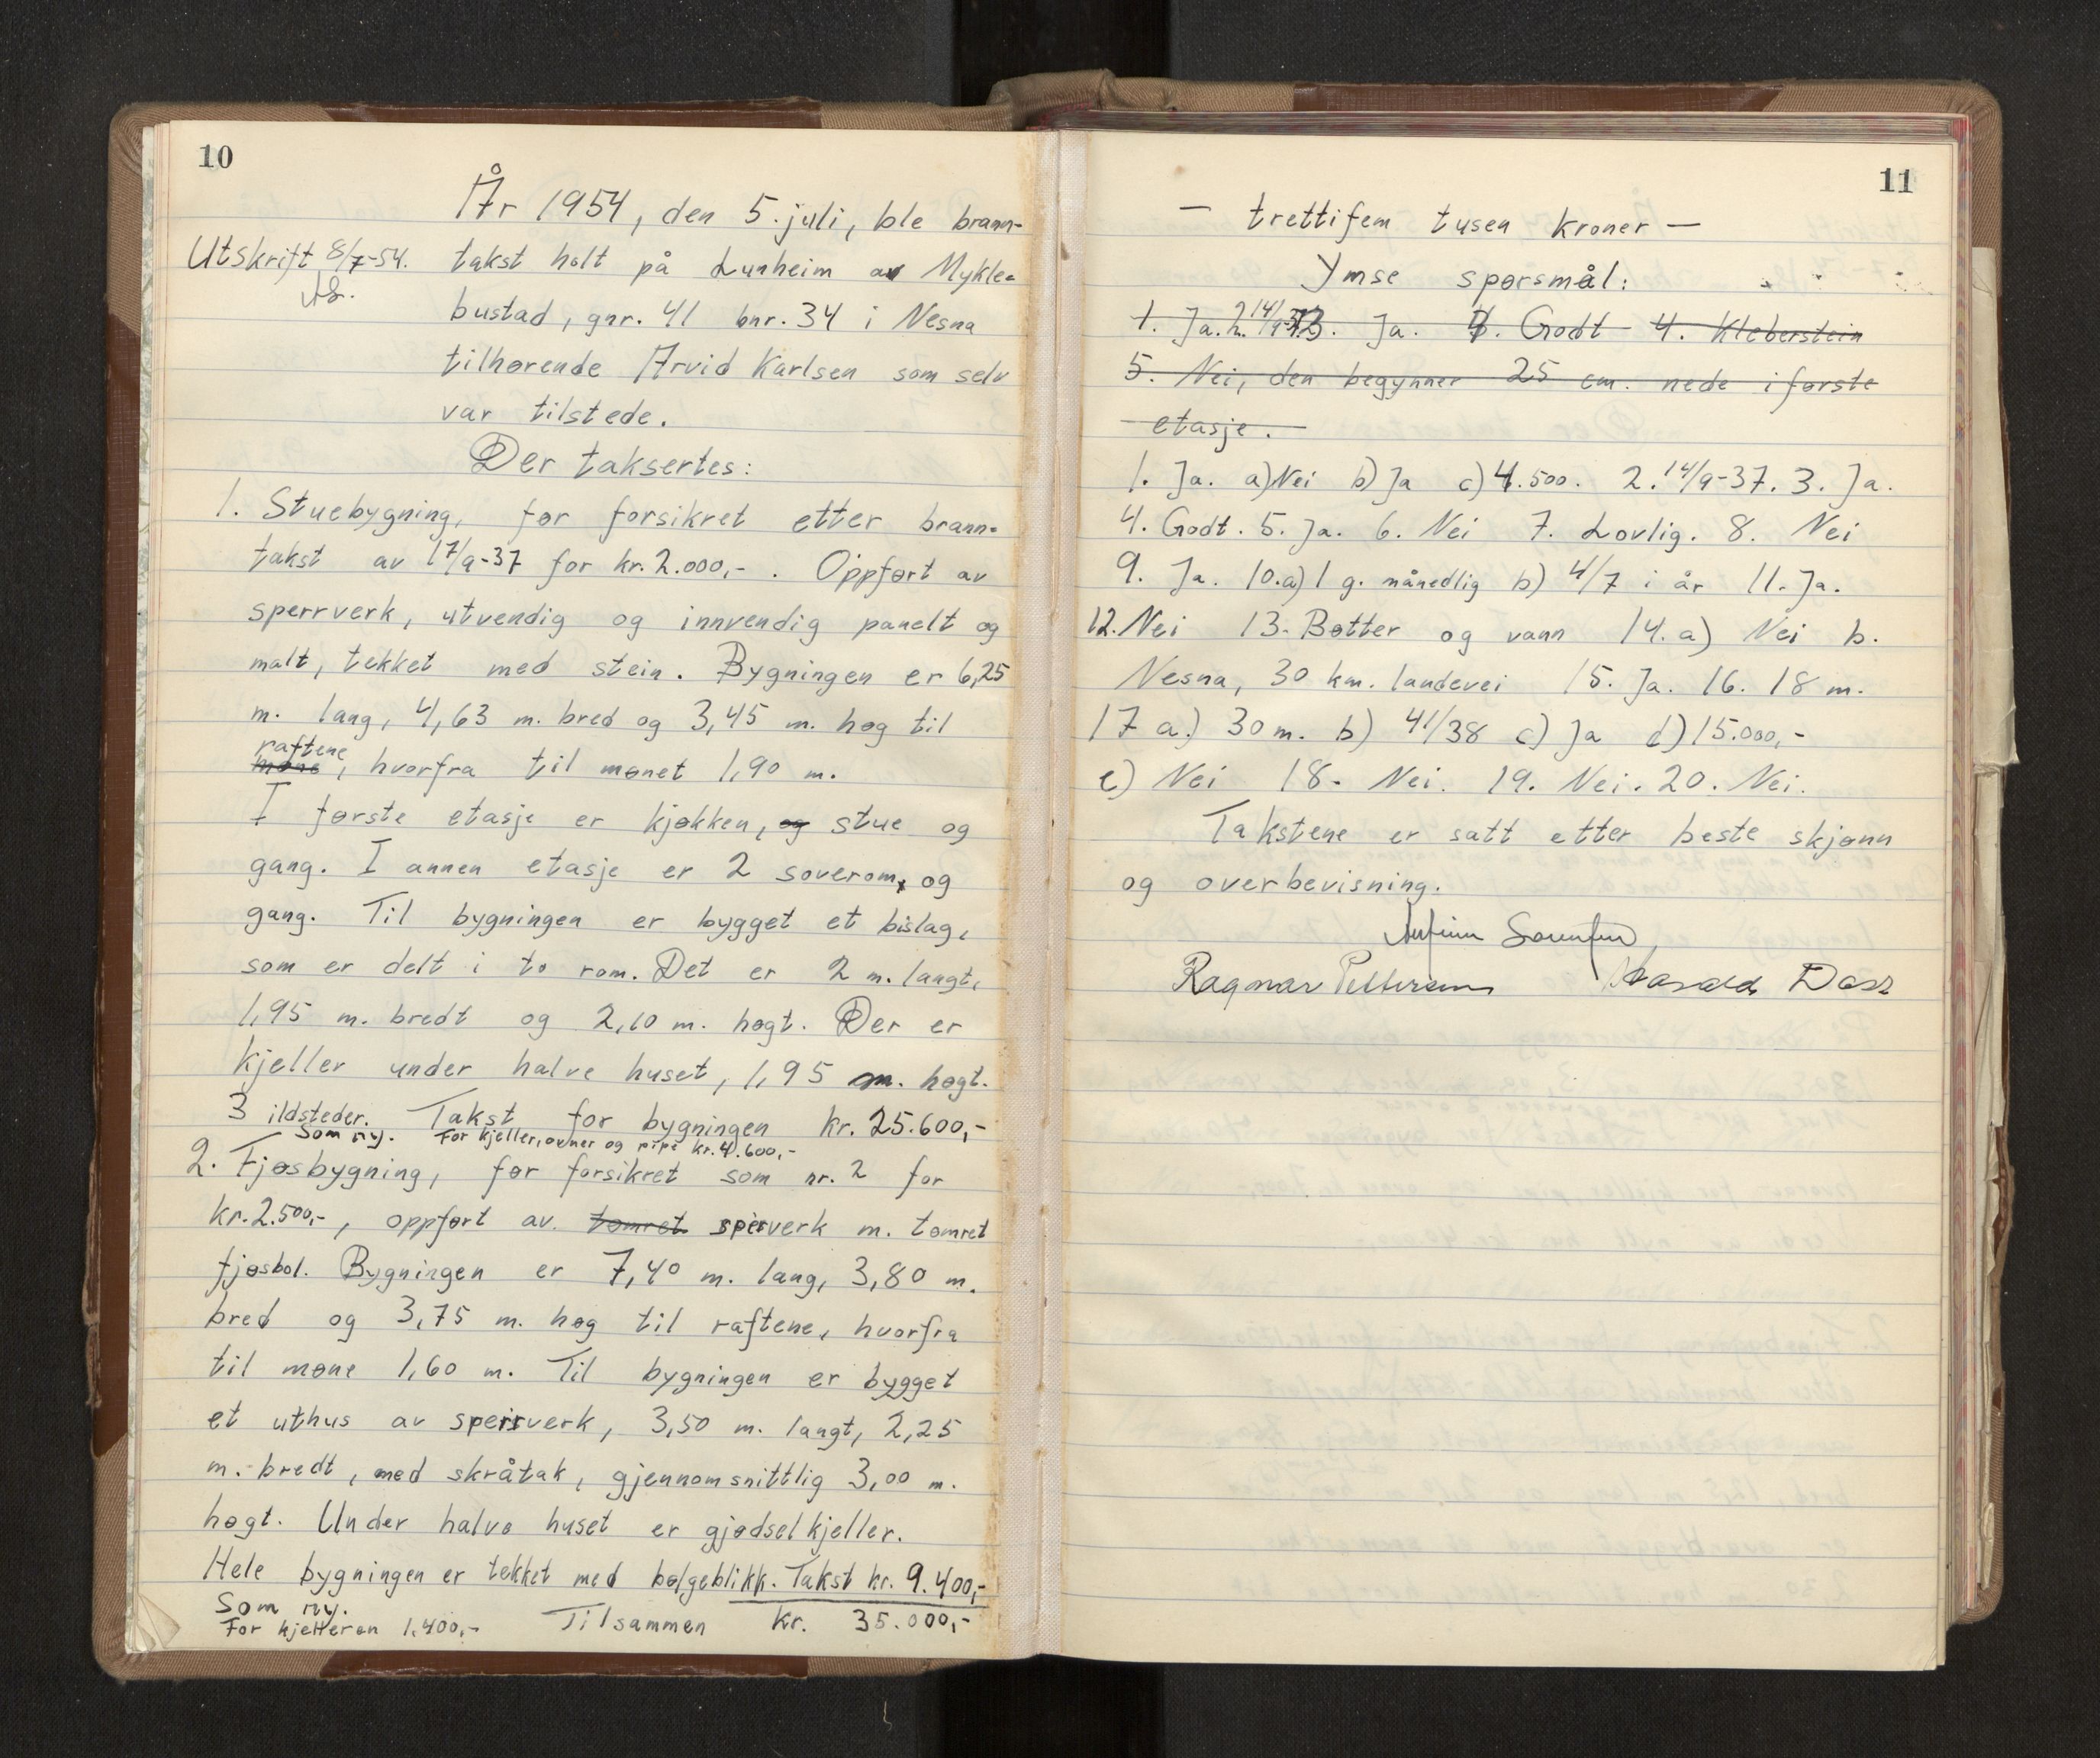 10
År 1954, den 5. juli, ble brann-
Utskrift 8/7-54.
takst holt på Lunheim av Mykle-
bustad, gnr. 41 bnr. 34 i Nesna
tilhørende Arvid Karlsen som selv
var tilstede.
Der taksertes:
1. Stuebygning, før forsikret etter brann-
takst av 17/9-37 for kr. 2.000,-. Oppført av
sperrverk, utvendig og innvendig panelt og
malt, tekket med stein. Bygningen er 6,25
m. lang, 4,63 m. bred og 3,45 m. høg til
raftene
møne, hvorfra til mønet 1,90 m.
I første etasje er kjøkken, og stue og
gang. I annen etasje er 2 soverom, og
gang. Til bygningen er bygget et bislag,
som er delt i to rom. Det er 2 m. langt,
1,95 m. bredt og 2,10 m. høgt. Der er
kjeller under halve huset, 1,95 m. høgt.
3 ildsteder. Takst for bygningen kr. 25.600,-
Som ny. For kjeller, ovner og pipe kr. 4.600,-
2. Fjøsbygning, før forsikret som nr. 2 for
kr. 2.500,-, oppført av tømret sperverk m. tømret
fjøsbol. Bygningen er 7,40 m. lang, 3,80 m.
bred og 3,75 m. høg til raftene, hvorfra
til møne 1,60 m. Til bygningen er bygget
et uthus av sperrverk, 3,50 m. langt, 2,25
m. bredt, med skråtak, gjennomsnittlig 3,00 m.
høgt. Under halve huset er gjødselkjeller.
Hele bygningen er tekket med bølgeblikk. Takst kr. 9.400,-
Som ny.
For kjelleren 1.400,- Tilsammen kr. 35.000,-
11
- trettifem tusen kroner -
Ymse spørsmål:
1. Ja. 2. 14/9-37 3. Ja. Godt 4. Kleberstein
5. Nei, den begynner 25 cm. nede i første
etasje.
1. Ja. a) Nei b) Ja c) 4.500. 2. 14/9-37. 3. Ja.
4. Godt. 5. Ja. 6. Nei 7. Lovlig. 8. Nei
9. Ja. 10. a) 1 g. månedlig b) 4/7 i år 11. Ja.
12. Nei 13. Bøtter og vann 14. a) Nei b.
Nesna, 30 km. landevei 15. Ja. 16. 18 m.
17 a.) 30 m. b) 41/38 c) Ja d) 15.000,-
e) Nei 18. Nei. 19. Nei. 20. Nei.
Takstene er satt etter beste skjønn
og overbevisning.
Ragnar Pettersen Harald Dass